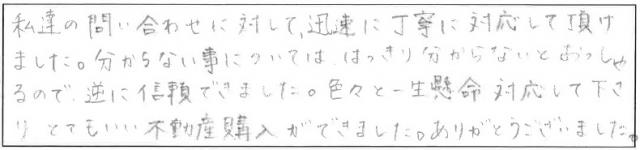 私達の問い合わせに対して、迅速に丁寧に対応して頂け
ました。分からない事については、はっきり分からないとおっしゃ
るので、逆に信頼できました。色々と一生懸命対応して下さ
り、とてもいい不動産購入ができました。ありがとうございました。